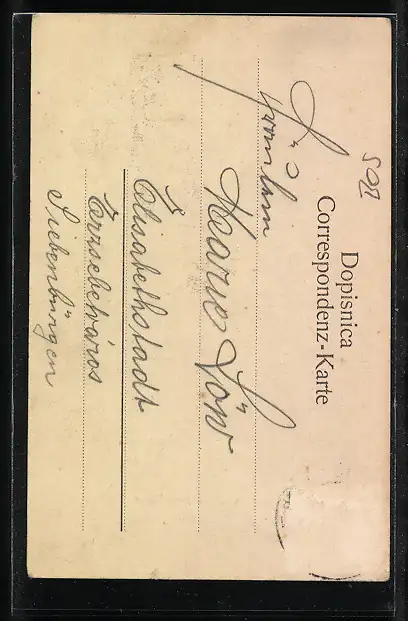 Dopisnica
Correspondenz-Karte
Fräulein
Marie Löw
Elisabethstadt
Erzsebetváros
Siebenbürgen